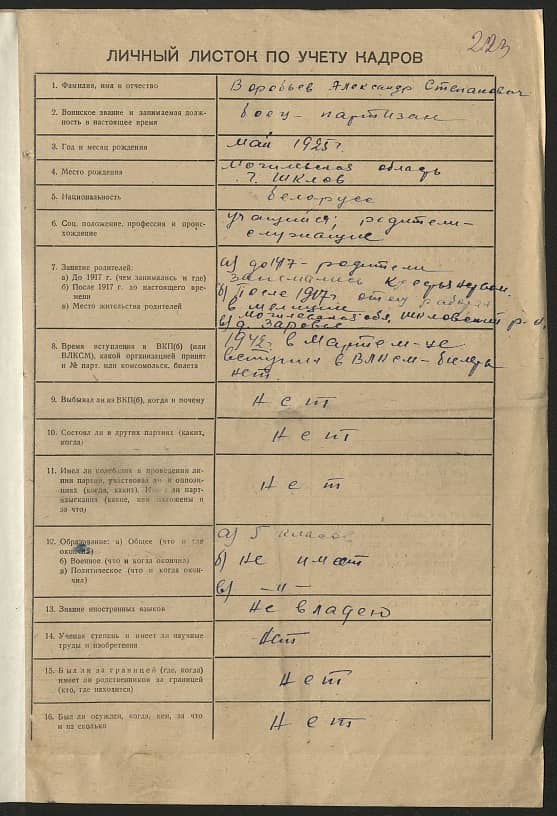 223
ЛИЧНЫЙ ЛИСТОК ПО УЧЕТУ КАДРОВ
1. Фамилия, имя и отчество
Воробьев Александр Степанович
2. Воинское звание и занимаемая долж-
ность в настоящее время
боец - партизан
3. Год и месяц рождения
май 1925 г.
4. Место рождения
Могильвская область
г. Шклов
5. Национальность
белорусс
6. Соц. положение, профессия и проис-
хождение
учащийся; родители-
служащие
7. Занятие родителей:
а) До 1917 г. (чем занимались и где)
б) После 1917 г. до настоящего вре-
мени
в) Место жительства родителей
а) до 1917 - родители
занимались
б) После 1917г. отец работал
в милиции
Могилевская обл, Шкловский р-н,
в) д. Заровье
8. Время вступления в ВКП(б) (или
ВЛКСМ), какой организацией принят
и № парт. или комсомольск. билета
1942г. в Марте м-це
вступил в ВЛКСМ - билета
нет.
9. Выбывал ли из ВКП(б), когда и почему
Нет
10. Состоял ли в других партиях (каких,
когда)
Нет
11. Имел ли колебания в проведении ли-
нии партии, участвовал ли в оппози-
циях (когда, каких). Имел ли парт-
взыскания (какие, кем наложены и
за что)
Нет
12. Образование: а) Общее (что и где
окончил)
б) Военное (что и когда окончил)
в) Политическое (что и когда окон-
чил)
а) 5 классов
б) Не имеет
в) -"-
13. Знание иностранных языков
Не владею
14. Ученая степень и имеет ли научные
труды и изобретения
Нет
15. Был ли за границей (где, когда)
имеет ли родственников за границей
(кто, где находится)
Нет
16. Был ли осужден, когда, кем, за что
и на сколько
Нет